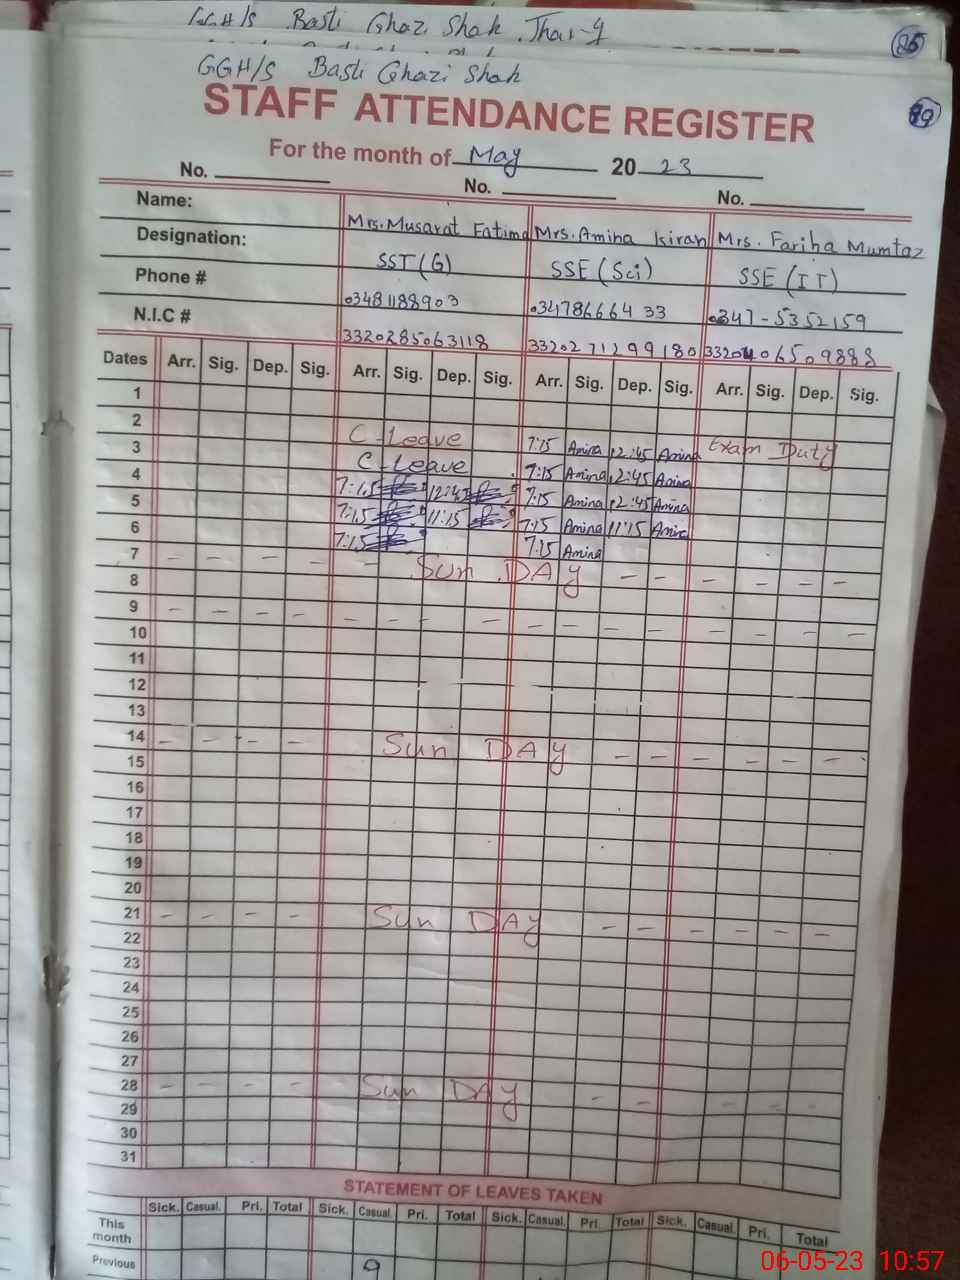 GGH/S Basti Ghazi Shah Thar-9
25
GGH/S Basti Ghazi Shah
STAFF ATTENDANCE REGISTER
For the month of May 2023
No. No. No.
Name: Mrs. Musarat Fatima Mrs. Amina kiran Mrs. Fariha Mumtaz
Designation: SST (G) SSE (Sci) SSE (IT)
Phone # 03481188903 03478666433 0347-5352159
N.I.C # 3320285063118 3320271299180
Dates Arr. Sig. Dep. Sig. Arr. Sig. Dep. Sig. Arr. Sig. Dep. Sig. Arr. Sig. Dep. Sig.
1
2 C-Leave 7:15 Amina 12:45 Amina Exam Duty
3 C-Leave 7:15 Amina 12:45 Amina
4 7:15 12:45 7:15 Amina 12:45 Amina
5 7:15 11:15 7:15 Amina 11:15 Amina
6 7:15 7:15 Amina
7 - - - - - - Sun DAY - - - - - -
8
9 - - - - - - - - - - - - - - - -
10
11
12
13
14 - - - - Sun DAY - - - - - -
15
16
17
18
19
20
21 - - - - Sun DAY - - - - - -
22
23
24
25
26
27
28 - - - - Sun DAY - - - - -
29
30
31
STATEMENT OF LEAVES TAKEN
Sick. Casual. Pri. Total Sick. Casual. Pri. Total Sick. Casual. Pri. Total Sick. Casual. Pri. Total
This month
Previous 9
06-05-23 10:57